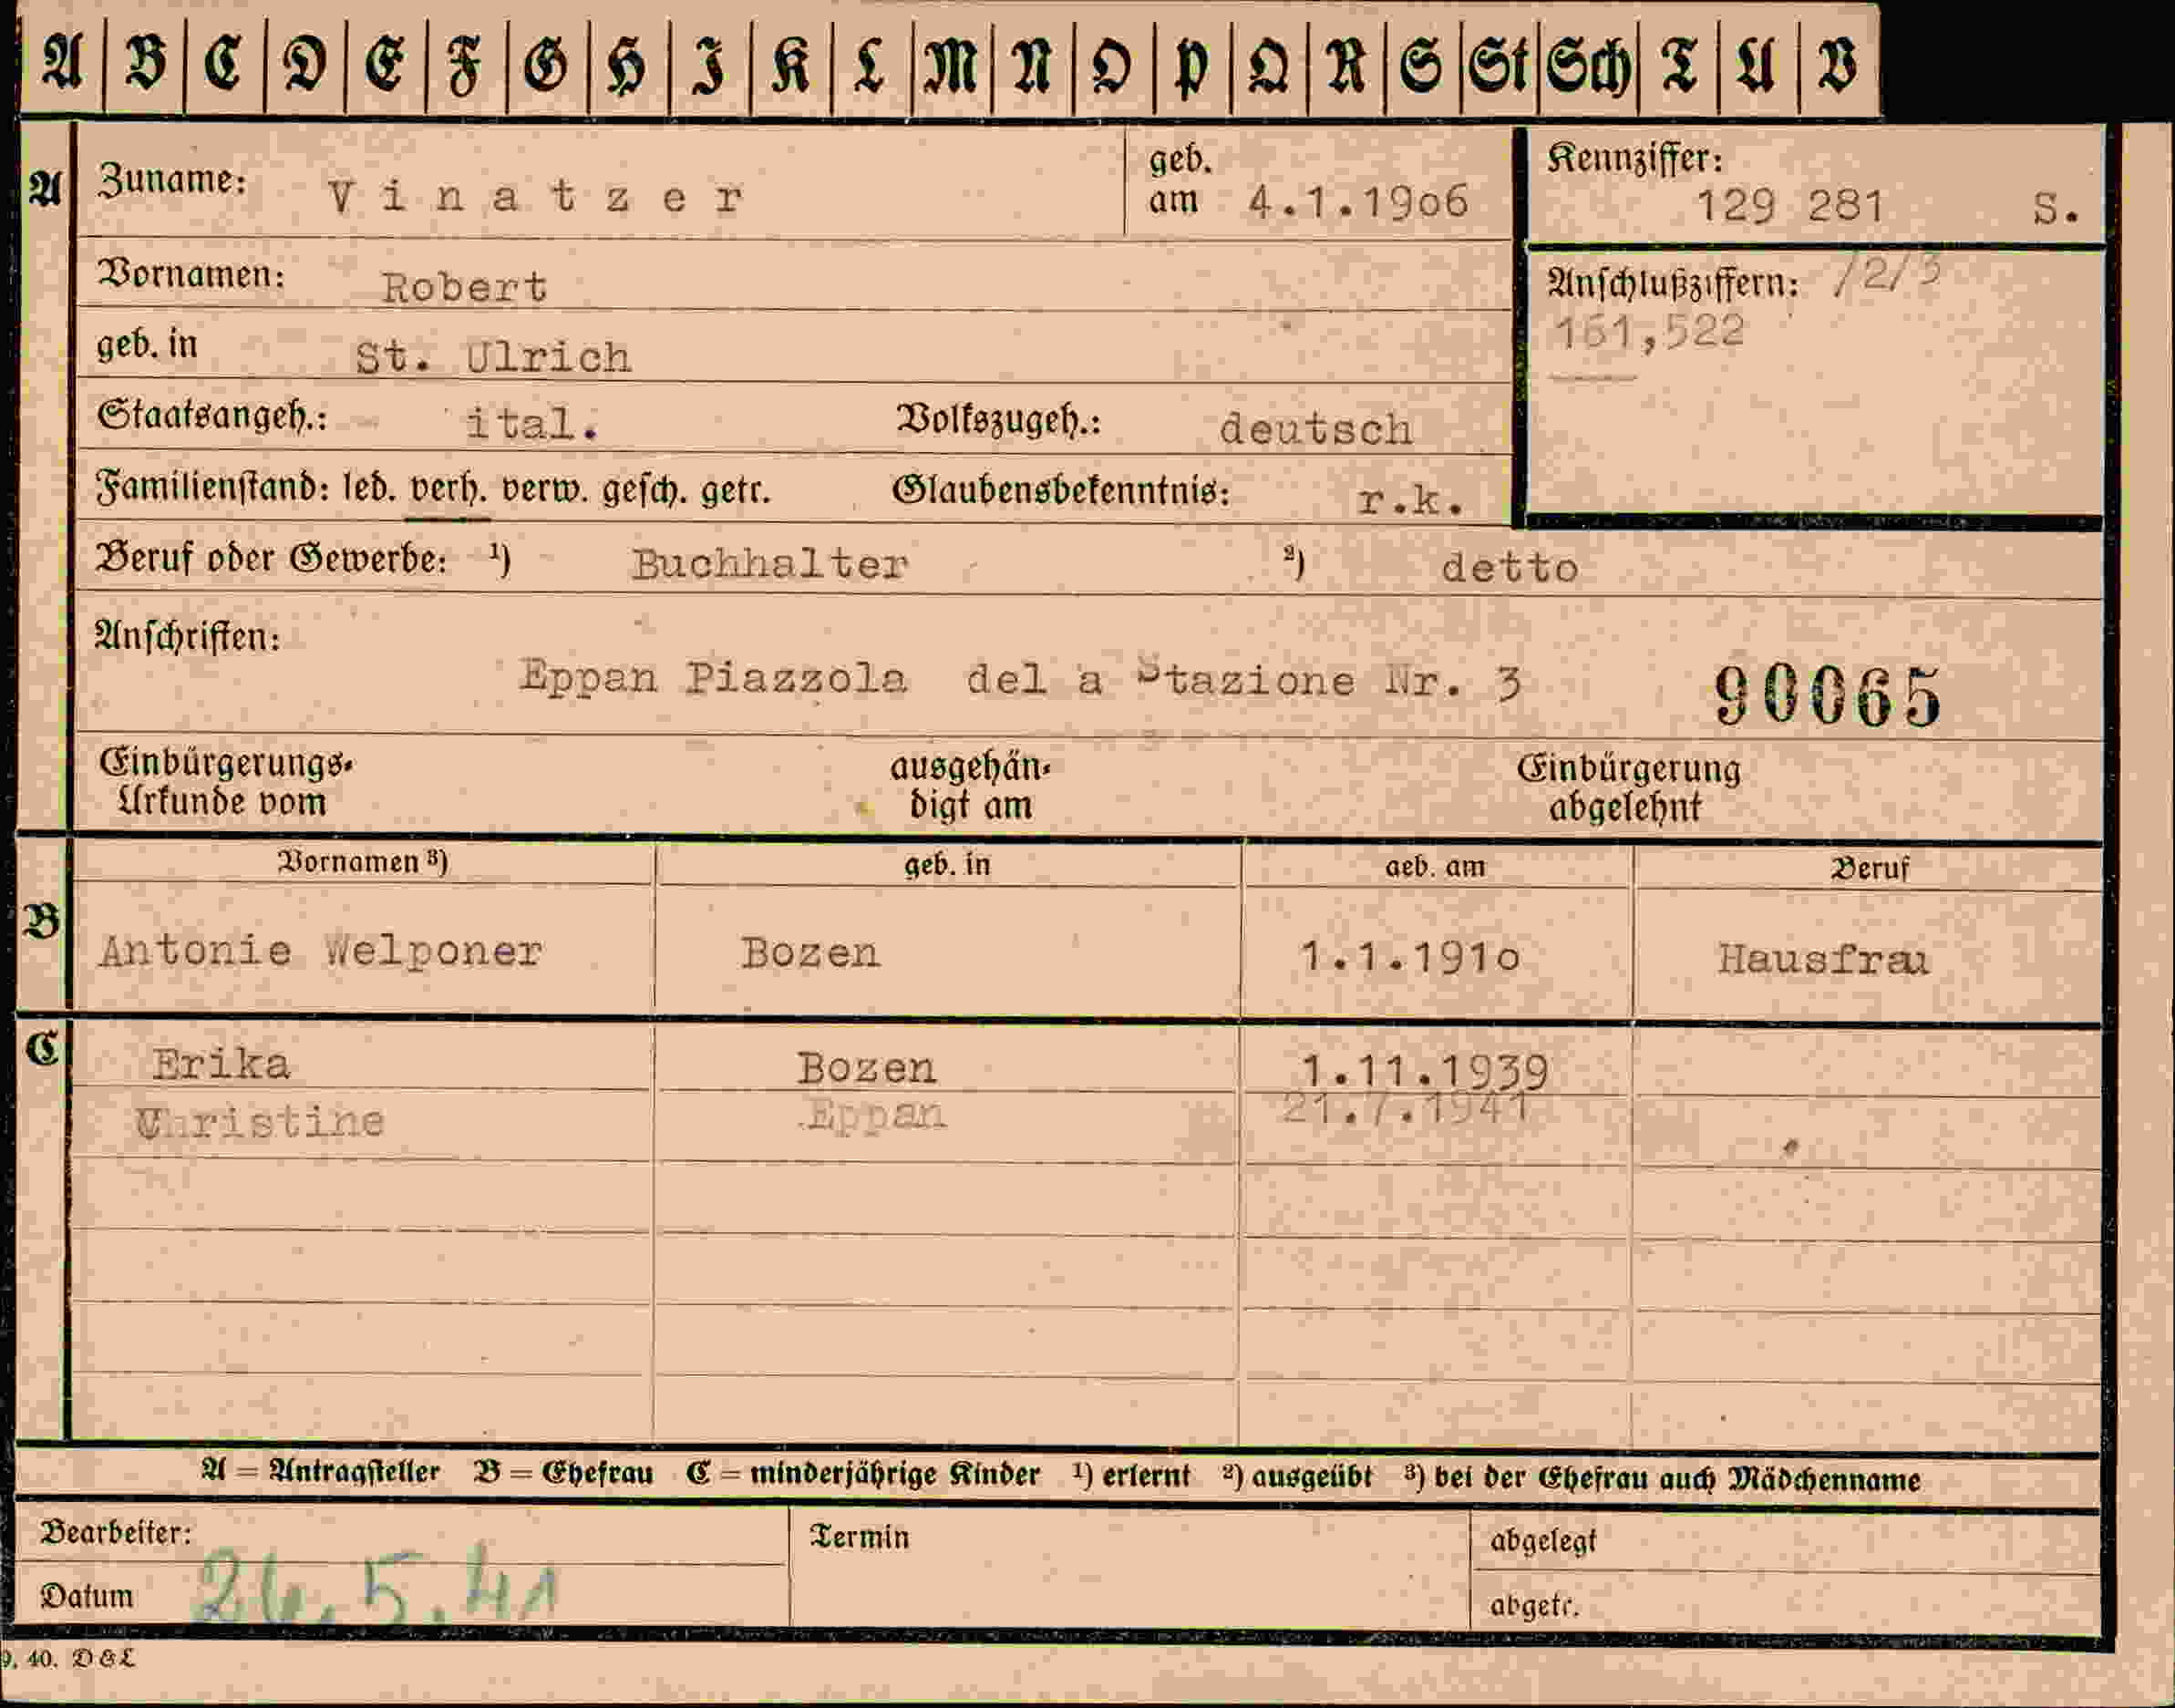 A B C D E F G H I K L M N O P Q R S St Sch T U V
A Zuname: Vinatzer geb. am 4.1.1906 Kennziffer: 129 281 S.
Vornamen: Robert Anschlußziffern: /2/3
161,522
geb. in St. Ulrich
Staatsangeh.: ital. Volkszugeh.: deutsch
Familienstand: led. verh. verw. gesch. getr. Glaubensbekenntnis: r.k.
Beruf oder Gewerbe: ¹) Buchhalter ²) detto
Anschriften:
Eppan Piazzola del a Stazione Nr. 3 90065
Einbürgerungs-Urkunde vom ausgehändigt am Einbürgerung abgelehnt
Vornamen ³) geb. in geb. am Beruf
B Antonie Welponer Bozen 1.1.1910 Hausfrau
C Erika Bozen 1.11.1939
Christine Eppan 21.7.1941
A = Antragsteller B = Ehefrau C = minderjährige Kinder ¹) erlernt ²) ausgeübt ³) bei der Ehefrau auch Mädchenname
Bearbeiter: Termin abgelegt
Datum 26.5.41 abgetr.
9. 40. D&L